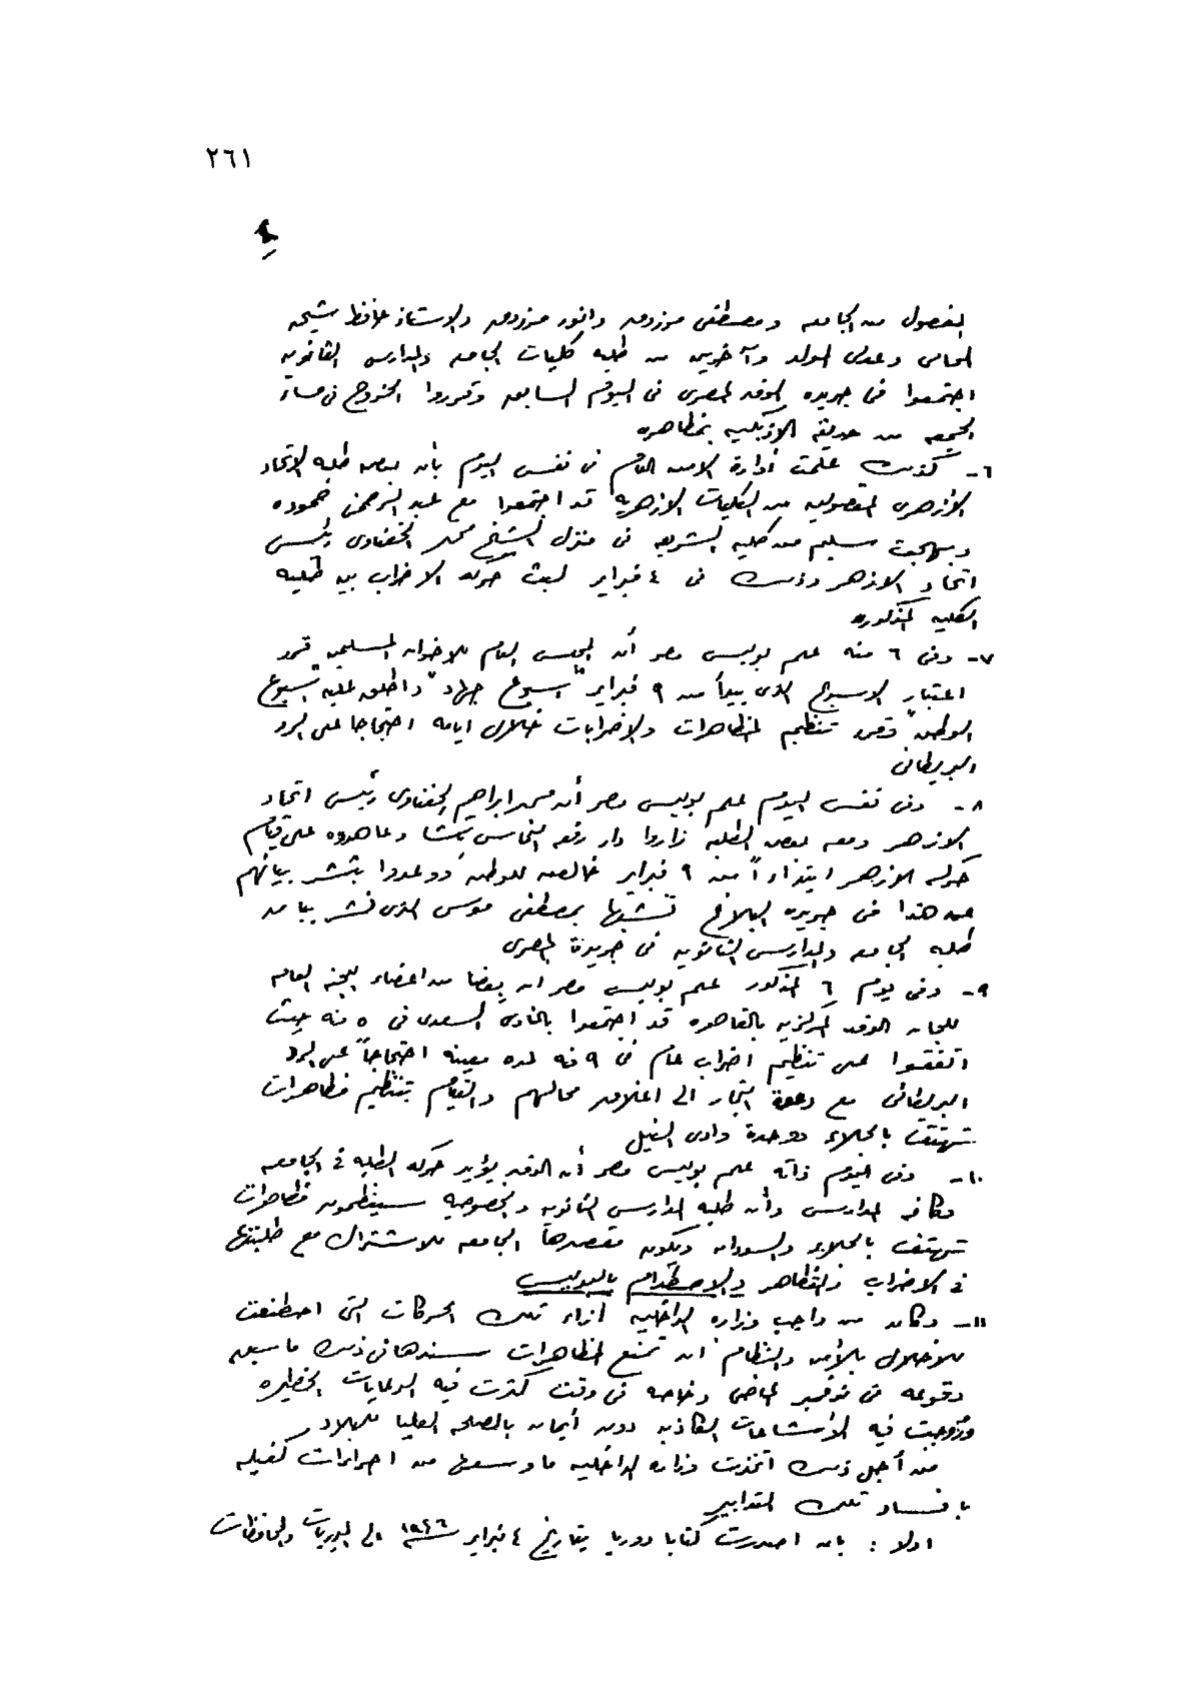 ٢٦١
٤
المفصول من الجامعه ومصطفى موسى وانور والاستاذ حافظ شيحه
المحامى وعدلى المولد وآخرين من طلبه كليات الجامعه والمدارس الثانويه
اجتمعوا فى جريده الوفد المصرى فى اليوم السابع وقرروا الخروج فى مساء
الجمعه من حديقه الازبكيه بمظاهره
٦- كذلك علمت أدارة الامن العام فى نفس اليوم بأن بعض طلبه الاتحاد
الأزهرى المفصولين من الكليات الازهريه قد اجتمعوا مع عبد الرحمن حموده
وبهجت سليم من كليه الشريعه فى منزل الشيخ محمد الحفناوى رئيس
اتحاد الازهر وذلك فى ٤ فبراير لبث حركه الاضراب بين طلبه
الكليه المذكوره
٧- وفى ٦ منه علم بوليس مصر أن المجلس العام للاخوان المسلمين قرر
اعتبار الاسبوع الذى يبدأ من ٩ فبراير "اسبوع جهاد" واطلق عليه "اسبوع
الوطن" وقرر تنظيم المظاهرات والاضرابات خلال ايامه احتجاجا على الرد
البريطانى
٨- وفى نفس اليوم علم بوليس مصر أن محمد ابراهيم الحفناوى رئيس اتحاد
الازهر ومعه بعض الطلبه زاروا دار رفعه النحاس باشا وعاهدوه على قيام
حركه الازهر ابتداءاً من ٩ فبراير خالصه للوطن ووعدوا بنشر بيانهم
عن هذا فى جريده البلاغ تشبها بمصطفى موسى الذى نشر بيانه
طلبه الجامعه والمدارس الثانويه فى جريدة المصرى
٩- وفى يوم ٦ المذكور علم بوليس مصر ان بعضا من اعضاء اللجنه العامه
للجان الوفد المركزيه بالقاهره قد اجتمعوا بالنادى السعدى فى ٥ منه حيث
اتفقوا على تنظيم اضراب عام فى ٩ منه لمده معينه احتجاجاً على الرد
البريطانى مع دعوة التجار الى اغلاق محالهم والقيام بتنظيم مظاهرات
تهتف بالجلاء ووحدة وادى النيل
١٠- وفى اليوم ذاته علم بوليس مصر أن الوفد يؤيد حركه الطلبه فى الجامعه
وكافه المدارس وأن طلبه المدارس الثانويه والخصوصيه سينظمون مظاهرات
تهتف بالجلاء والسودان ويكون مقصدها الجامعه للاشتراك مع طلبتها
فى الاضراب والتظاهر والاصطدام بالبوليس
١١- وكان من واجب وزاره الداخليه ازاء تلك الحركات التى اصطنعت
للاخلال بالأمن والنظام ان تمنع المظاهرات سندها فى ذلك ما سبق
وقوعه فى نوفمبر الماضى وخاصه فى وقت كثرت فيه الدعايات الخطيره
وروجت فيه الأشاعات الكاذبه دون أيمان بالمصلحه العليا للبلاد
من أجل ذلك اتخذت وزاره الداخليه ما وسعها من اجراءات كفيله
بافساد تلك التدابير
اولا : بأن اصدرت كتابا دوريا بتاريخ ٤ فبراير ١٩٤٦ الى المديريات والمحافظات